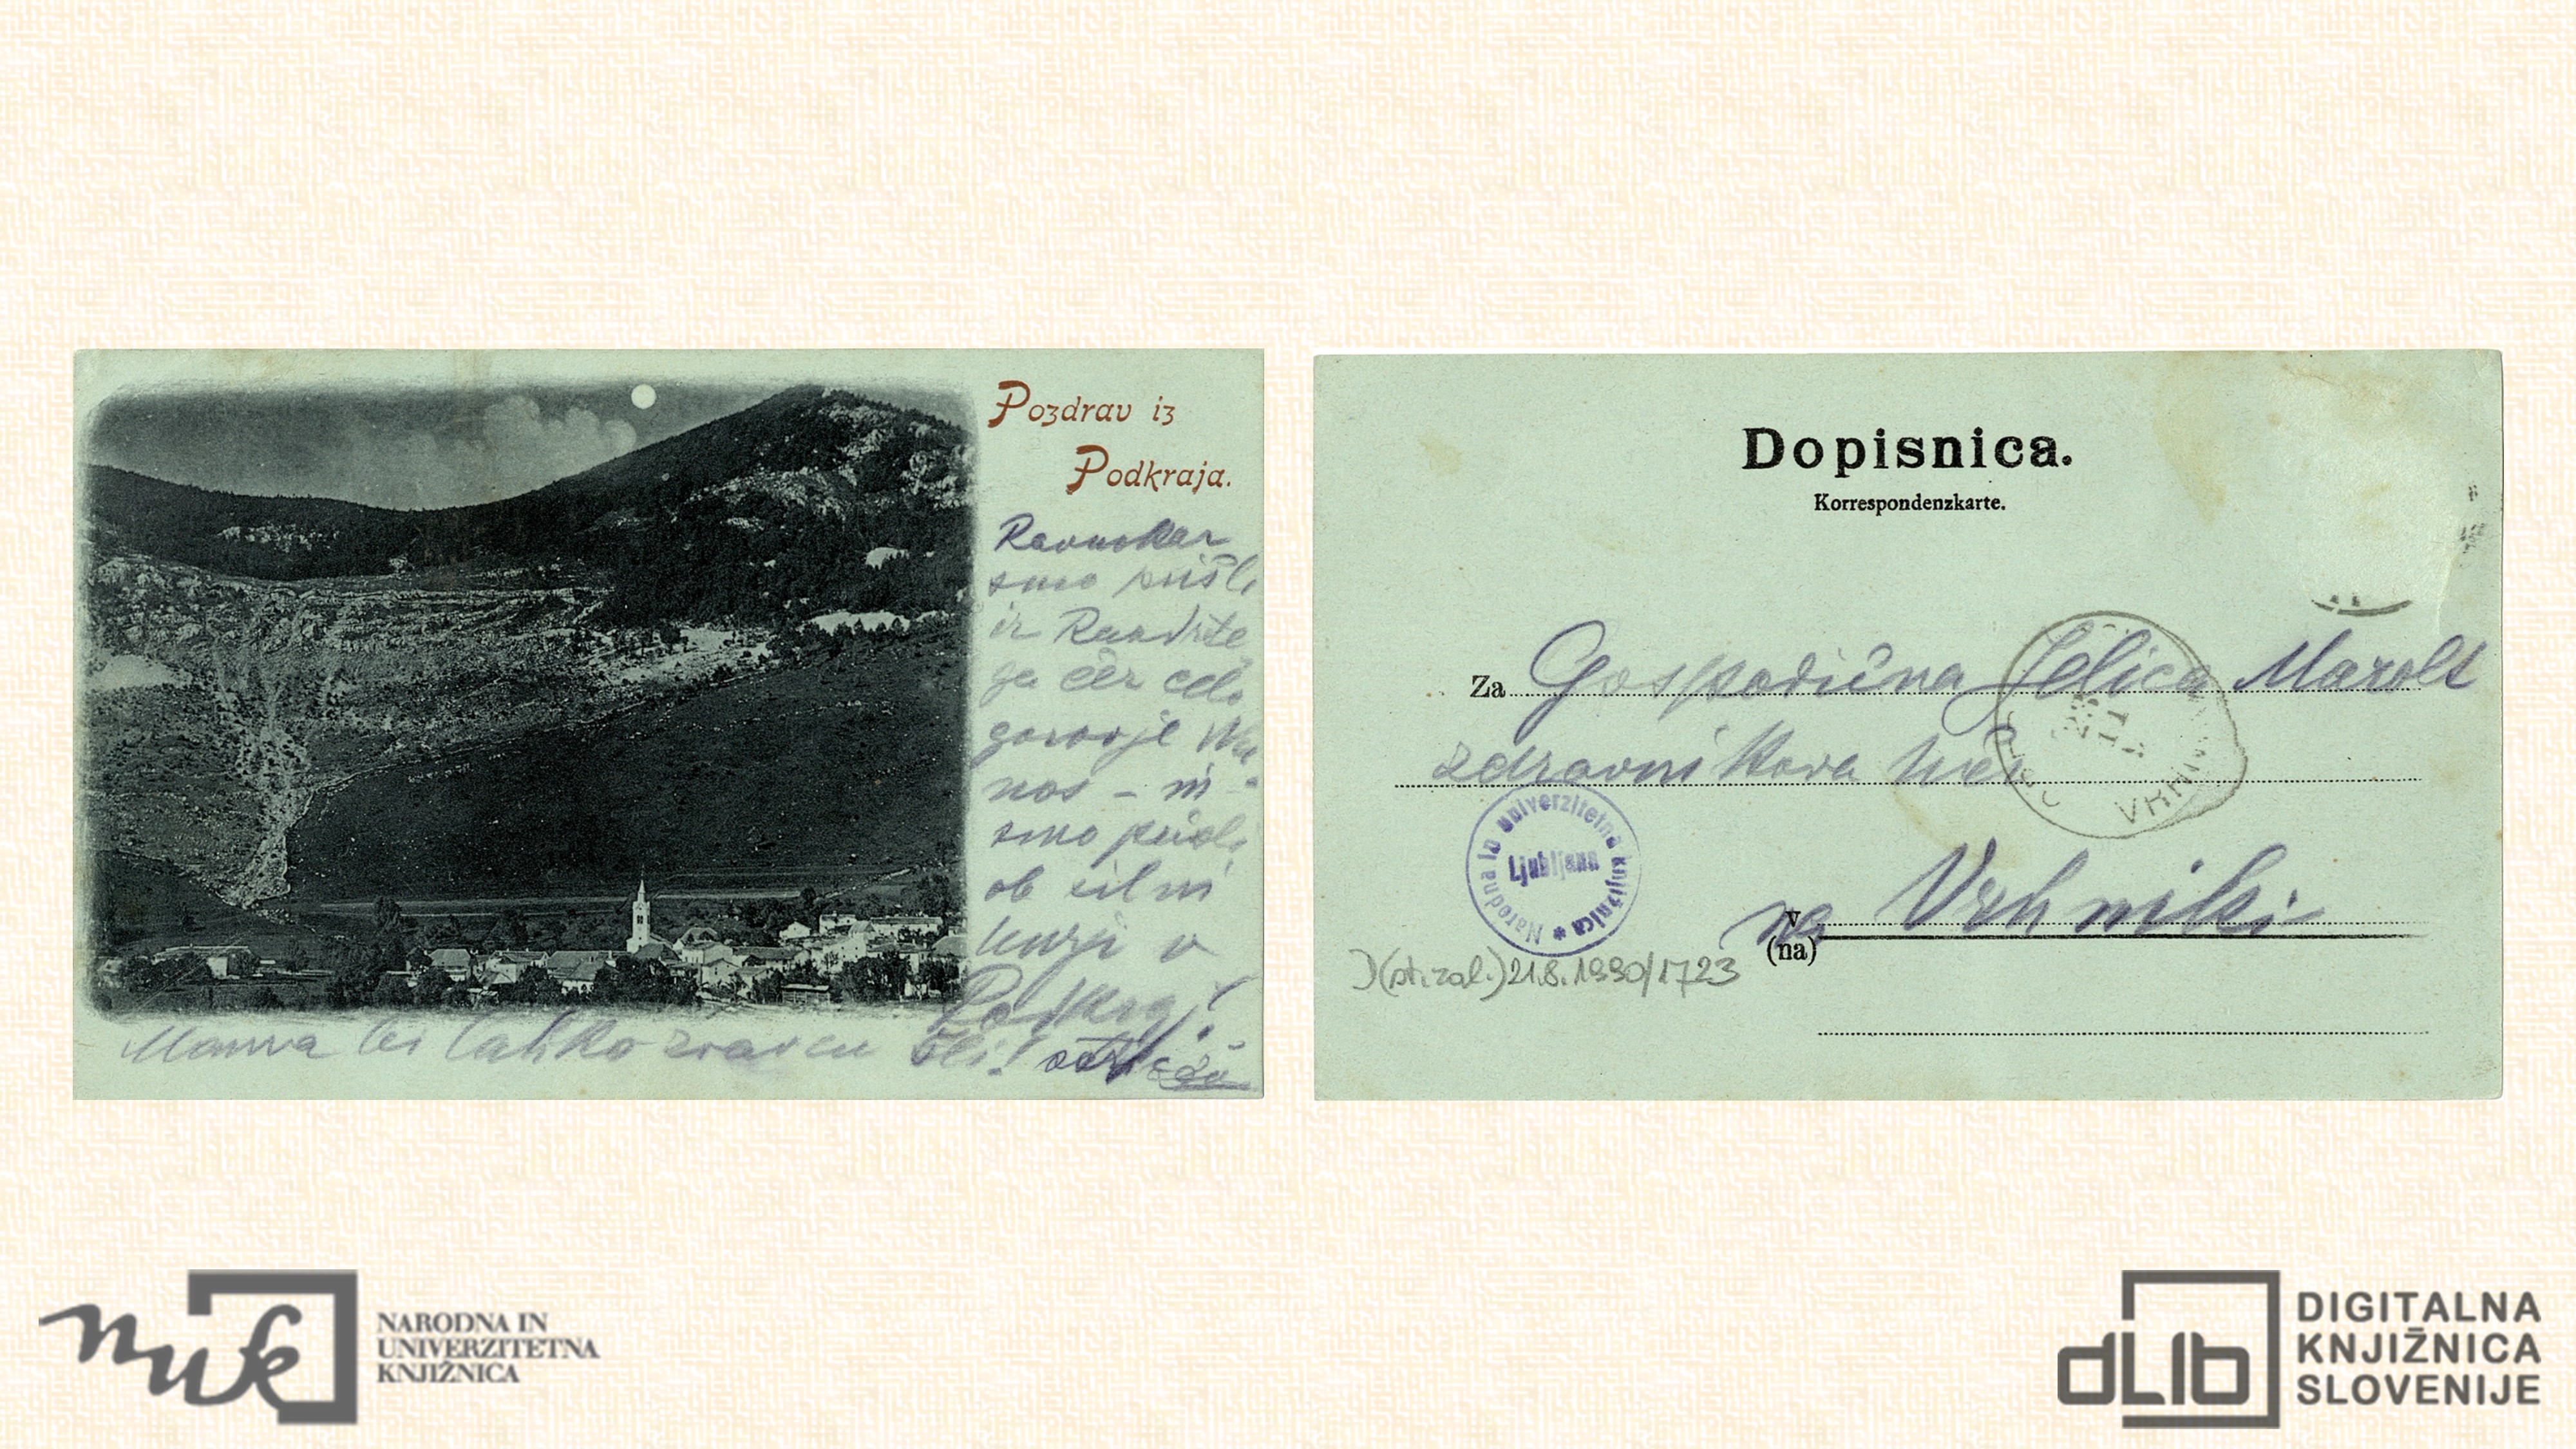 Pozdrav iz
Podkraja.
Ravnokar
smo prišli
iz Razdrte
ga čez celo
gorovje Na
nos – in
smo prišli
ob silni
burji v
Podkraj!
Mama bi lahko zraven šli!
Dopisnica.
Korrespondenzkarte.
Za Gospodična Jelica Marolt
zdravnikova hči
VRHNIKA
Narodna in univerzitetna knjižnica *
Ljubljana
v na Vrhniki
(na)
D(st.zal.)21.8.1990/1723
nuk
NARODNA IN
UNIVERZITETNA
KNJIŽNICA
dLib
DIGITALNA
KNJIŽNICA
SLOVENIJE